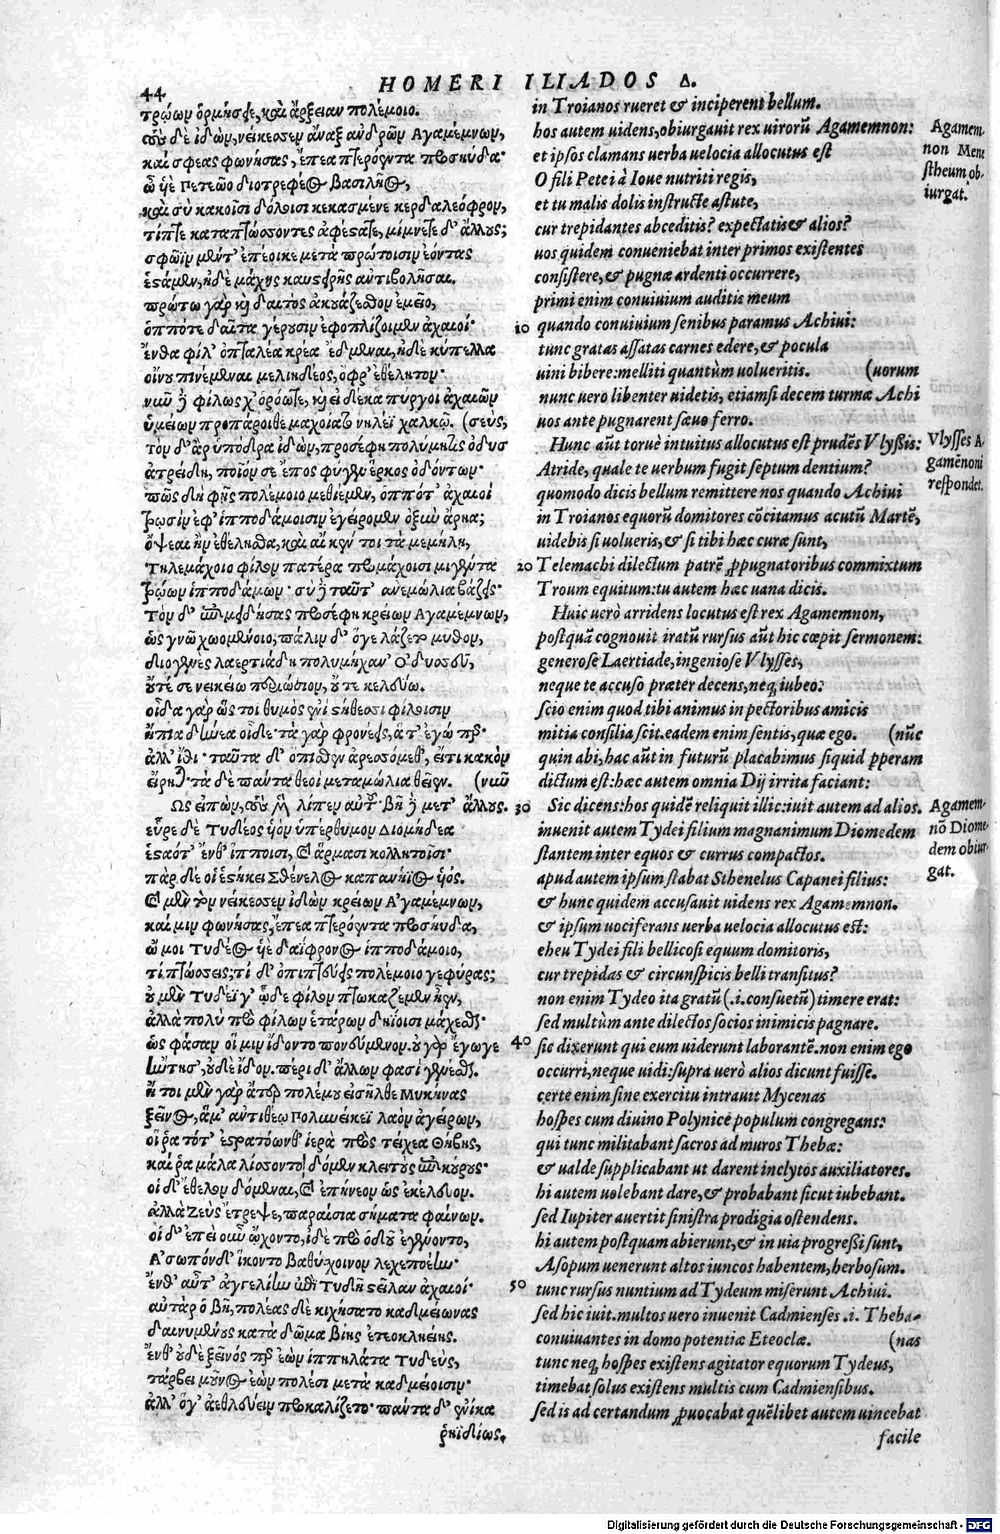 44
HOMERI ILIADOS Δ.
τρώων ὁρμήσειε, καὶ ἄρξειαν πολέμοιο.
τοὺς δὲ ἰδὼν, νείκεσσεν ἄναξ ἀνδρῶν Αγαμέμνων,
καί σφεας φωνήσας, ἔπεα πτερόεντα προσηύδα·
ὦ υἱὲ πετεῶο διοτρεφέος βασιλῆος,
καὶ σὺ κακοῖσι δόλοισι κεκασμένε κερδαλεόφρον,
τίπτε καταπτώσσοντες ἀφέστατε, μίμνετε δ᾽ ἄλλους;
σφῶϊν μέν τ᾽ ἐπέοικε μετὰ πρώτοισιν ἐόντας
ἑστάμεν, ἠδὲ μάχης καυστειρῆς ἀντιβολῆσαι.
πρώτω γὰρ καὶ δαιτὸς ἀκουάζεσθον ἐμεῖο,
ὁππότε δαῖτα γέρουσιν ἐφοπλίζοιμεν ἀχαιοί·
ἔνθα φίλ᾽ ὀπταλέα κρέα ἔδμεναι, ἠδὲ κύπελλα
οἴνου πινέμεναι μελιηδέος, ὄφρ᾽ ἐθέλητον·
νῦν δὲ φίλως χ᾽ ὁρόῳτε, καὶ εἰ δέκα πύργοι ἀχαιῶν
ὑμείων προπάροιθε μαχοίατο νηλέϊ χαλκῷ. (σεὺς,
τὸν δ᾽ ἄρ ὑπόδρα ἰδὼν, προσέφη πολύμητις ὀδυσ
ἀτρείδη, ποῖόν σε ἔπος φύγεν ἕρκος ὀδόντων·
πῶς δὴ φῂς πολέμοιο μεθιέμεν, ὁππότ᾽ ἀχαιοὶ
τρωσὶν ἐφ᾽ ἱπποδάμοισιν ἐγείρομεν ὀξὺν ἄρηα;
ὄψεαι ἢν ἐθέλησθα, καὶ αἴ κέν τοι τὰ μεμήλῃ,
τηλεμάχοιο φίλον πατέρα προμάχοισι μιγέντα
τρώων ἱπποδάμων· σὺ δὲ ταῦτ᾽ ἀνεμώλια βάζεις·
Τὸν δ᾽ ἐπιμειδήσας προσέφη κρείων Αγαμέμνων,
ὡς γνῶ χωομένοιο, πάλιν δ᾽ ὅγε λάζετο μῦθον,
διογενὲς λαερτιάδη πολυμήχαν᾽ Οδυσσεῦ,
οὔτέ σε νεικείω περιώσιον, οὔτε κελεύω.
οἶδα γὰρ ὥς τοι θυμὸς ἐνὶ στήθεσσι φίλοισιν
ἤπια δήνεα οἶδε· τὰ γὰρ φρονέεις, ἅ τ᾽ ἐγώ περ·
ἀλλ᾽ ἴθι· ταῦτα δ᾽ ὄπισθεν ἀρεσσόμεθ᾽, εἴ τι κακὸν
εἴρηται· τὰ δὲ πάντα θεοὶ μεταμώλια θεῖεν. (νῦν
Ως εἰπὼν, τοὺς μὲν λίπεν αὐτοῦ· βῆ δὲ μετ᾽ ἄλλους.
εὗρε δὲ Τυδέος υἱὸν ὑπέρθυμον Διομήδεα
ἑσταότ᾽ ἔνθ᾽ ἵπποισι, καὶ ἅρμασι κολλητοῖσι·
πὰρ δέ οἱ ἑστήκει Σθένελος καπανήϊος υἱός.
καὶ μὲν τὸν νείκεσσεν ἰδὼν κρείων Αγαμέμνων,
καί μιν φωνήσας, ἔπεα πτερόεντα προσηύδα,
ὤ μοι Τυδέος υἱὲ δαΐφρονος ἱπποδάμοιο,
τί πτώσσεις; τί δ᾽ ὀπιπτεύεις πολέμοιο γεφύρας;
οὐ μὲν Τυδέϊ γ᾽ ὧδε φίλον πτωκαζέμεν ἦεν,
ἀλλὰ πολὺ πρὸ φίλων ἑτάρων δηΐοισι μάχεσθαι·
ὡς φάσαν οἵ μιν ἴδοντο πονεύμενον. οὐ γὰρ ἔγωγε
ἤντησ᾽, οὐδὲ ἴδον. περὶ δ᾽ ἄλλων φασὶ γενέσθαι.
ἤ τοι μὲν γὰρ ἄτερ πολέμου εἰσῆλθε Μυκήνας
ξεῖνος, ἅμ᾽ ἀντιθέῳ Πολυνείκεϊ λαὸν ἀγείρων,
οἵ ῥα τότ᾽ ἐστρατόωνθ᾽ ἱερὰ πρὸς τείχεα Θήβης,
καί ῥα μάλα λίσσοντο δόμεν κλειτοὺς ἐπικούρους·
οἱ δ᾽ ἔθελον δόμεναι, καὶ ἐπῄνεον ὡς ἐκέλευον.
ἀλλὰ Ζεὺς ἔτρεψε, παραίσια σήματα φαίνων.
οἱ δ᾽ ἐπεὶ οὖν ᾤχοντο, ἰδὲ πρὸ ὁδοῦ ἐγένοντο,
Ασωπὸν δ᾽ ἵκοντο βαθύσχοινον λεχεποίην·
ἔνθ᾽ αὖτ᾽ ἀγγελίην ἐπὶ Τυδῆ στεῖλαν ἀχαιοί·
αὐτὰρ ὁ βῆ, πολέας δὲ κιχήσατο καδμείωνας
δαινυμένους κατὰ δῶμα βίης ἐτεοκληείης.
ἔνθ᾽ οὐδὲ ξεῖνός περ ἐὼν ἱππηλάτα Τυδεὺς,
τάρβει μοῦνος ἐὼν πολέσι μετὰ καδμείοισιν·
ἀλλ᾽ ὅγ᾽ ἀεθλεύειν προκαλίζετο· πάντα δ᾽ ἐνίκα
ῥηϊδίως,
in Troianos rueret & inciperent bellum.
hos autem uidens, obiurgauit rex uirorũ Agamemnon:
et ipsos clamans uerba uelocia allocutus est
O fili Petei à Ioue nutriti regis,
et tu malis dolis instructe astute,
cur trepidantes abceditis? expectatis & alios?
uos quidem conueniebat inter primos existentes
consistere, & pugnæ ardenti occurrere,
primi enim conuiuium auditis meum
10 quando conuiuium senibus paramus Achiui:
tunc gratas assatas carnes edere, & pocula
uini bibere: melliti quantùm uolueritis. (uorum
nunc uero libenter uidetis, etiamsi decem turmæ Achi
uos ante pugnarent sæuo ferro.
Hunc aũt toruè intuitus allocutus est prudẽs Vlyssis:
Atride, quale te uerbum fugit septum dentium?
quomodo dicis bellum remittere nos quando Achiui
in Troianos equorũ domitores cõcitamus acutũ Martẽ,
uidebis si uolueris, & si tibi hæc curæ sunt,
20 Telemachi dilectum patrẽ ꝓpugnatoribus commixtum
Troum equitum: tu autem hæc uana dicis.
Huic uerò arridens locutus est rex Agamemnon,
postquã cognouit iratũ rursus aũt hic cœpit sermonem:
generose Laertiade, ingeniose Vlysses,
neque te accuso præter decens, neq; iubeo:
scio enim quod tibi animus in pectoribus amicis
mitia consilia scit. eadem enim sentis, quæ ego. (nũc
quin abi, hæc aũt in futurũ placabimus siquid pperam
dictum est: hæc autem omnia Dij irrita faciant:
30 Sic dicens: hos quidẽ reliquit illic: iuit autem ad alios.
inuenit autem Tydei filium magnanimum Diomedem
stantem inter equos & currus compactos.
apud autem ipsum stabat Sthenelus Capanei filius:
& hunc quidem accusauit uidens rex Agamemnon.
& ipsum uociferans uerba uelocia allocutus est:
eheu Tydei fili bellicosi equum domitoris,
cur trepidas & circunspicis belli transitus?
non enim Tydeo ita gratũ (.i. consuetũ) timere erat:
sed multùm ante dilectos socios inimicis pagnare.
40 sic dixerunt qui eum uiderunt laborantẽ. non enim ego
occurri, neque uidi: supra uerò alios dicunt fuisse.
certe enim sine exercitu intrauit Mycenas
hospes cum diuino Polynice populum congregans:
qui tunc militabant sacros ad muros Thebæ:
& ualde supplicabant ut darent inclytos auxiliatores.
hi autem uolebant dare, & probabant sicut iubebant.
sed Iupiter auertit sinistra prodigia ostendens.
hi autem postquam abierunt, & in uia progressi sunt,
Asopum uenerunt altos iuncos habentem, herbosum.
50 tunc rursus nuntium ad Tydeum miserunt Achiui.
sed hic iuit. multos uero inuenit Cadmienses .i. Theba-
conuiuantes in domo potentiæ Eteoclæ. (nas
tunc neq; hospes existens agitator equorum Tydeus,
timebat solus existens multis cum Cadmiensibus.
sed is ad certandum ꝓuocabat quẽlibet autem uincebat
facile
Agamem
non Mene
stheum ob-
iurgat.
Vlysses A
gamẽnoni
respondet.
Agamem-
nõ Diome-
dem obiur-
gat.
Digitalisierung gefördert durch die Deutsche Forschungsgemeinschaft - DFG